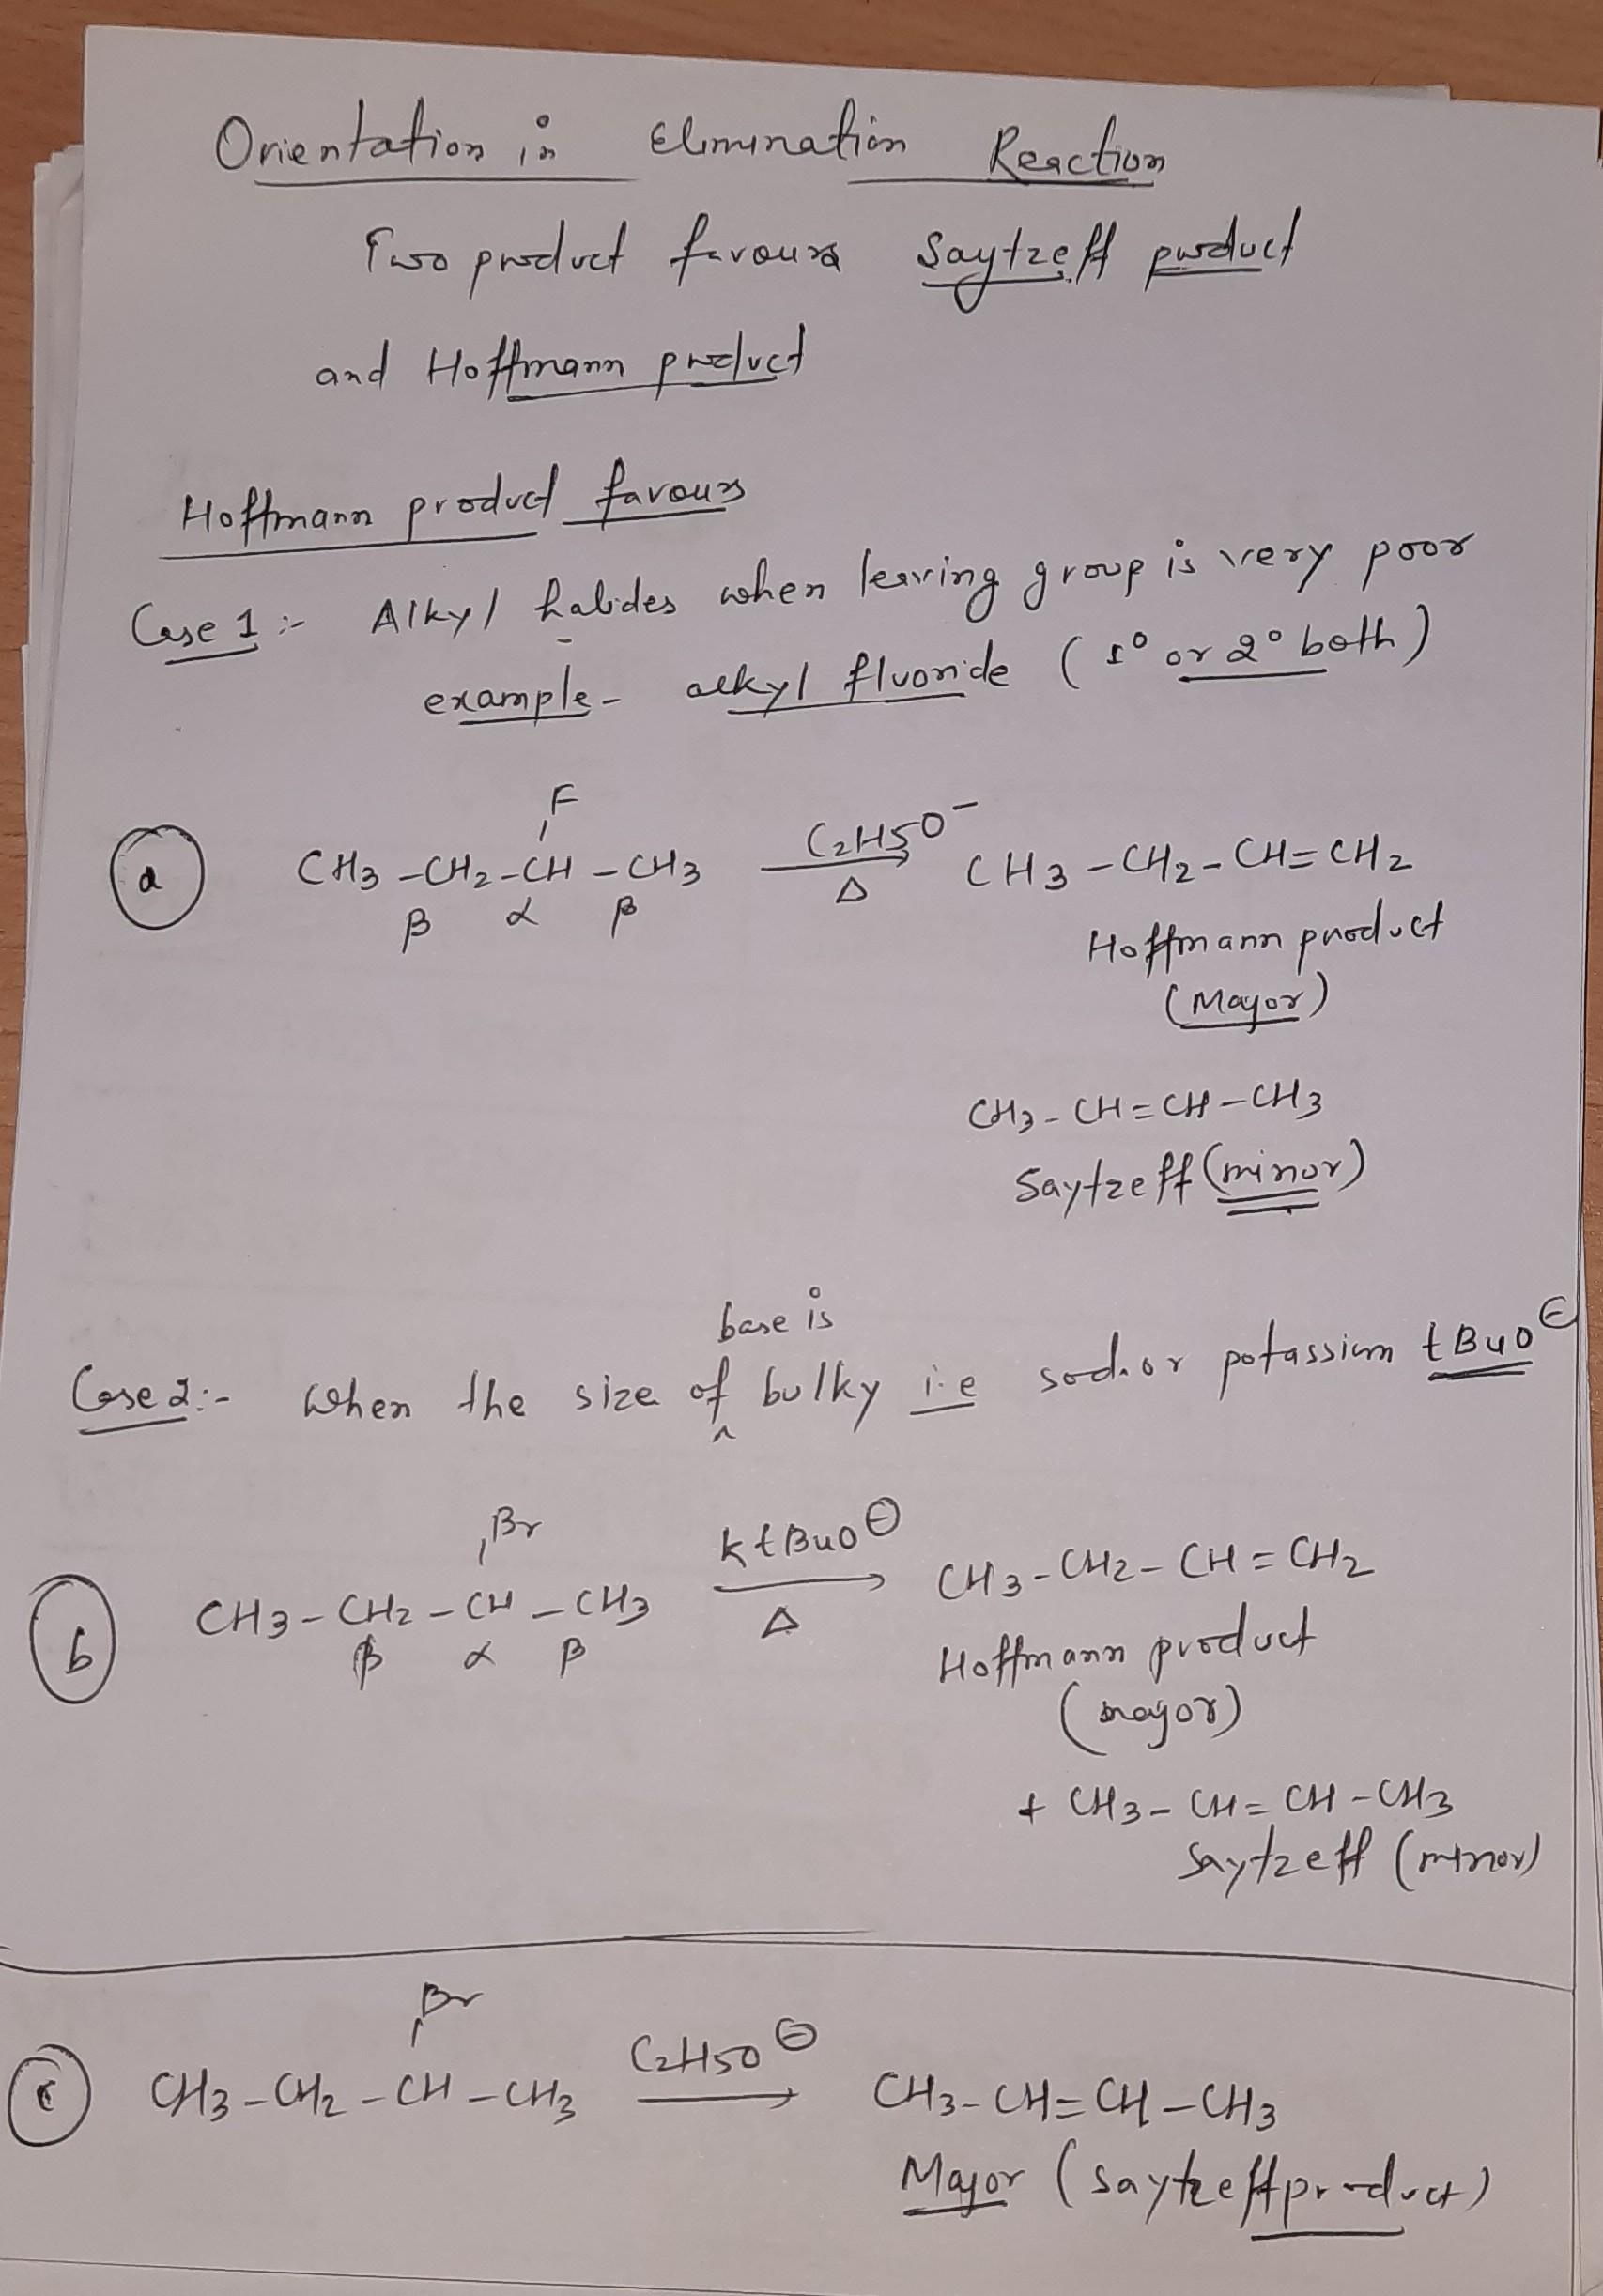 Orientation in Elimination Reaction
Two product favours Saytzeff product
and Hoffmann product
Hoffmann product favours
Case 1 :- Alkyl halides when leaving group is very poor
example - alkyl fluoride (1° or 2° both)
F
a CH3 -CH2-CH -CH3 C2H5O⁻ Δ CH3 -CH2-CH=CH2
β α β
Hoffmann product
(Major)
CH3-CH=CH-CH3
Saytzeff (minor)
base is
Case 2:- When the size of ^ bulky i.e sod. or potassium tBuO⊖
Br
b CH3-CH2-CH-CH3 KtBuO⊖ Δ CH3-CH2-CH=CH2
β α β
Hoffmann product
(major)
+ CH3-CH=CH-CH3
Saytzeff (minor)
Br
c CH3-CH2-CH-CH3 C2H5O⊖ CH3-CH=CH-CH3
Major (Saytzeff product)